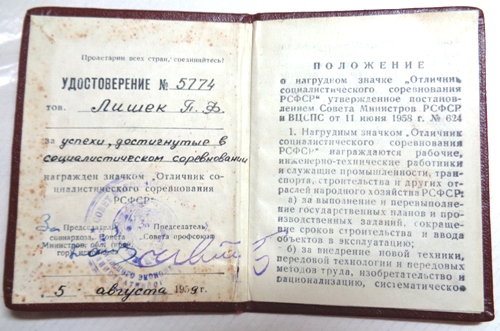 Пролетарии всех стран, соединяйтесь!
УДОСТОВЕРЕНИЕ № 5774
тов. Лишек П. Ф.
за успехи, достигнутые в
социалистическом соревновании
награжден значком „Отличник со-
циалистического соревнования
РСФСР“
Председатель Председатель
совнархоза, Совета Совета профсоюзов
Министров
5 августа 1959 г.
ПОЛОЖЕНИЕ
о нагрудном значке „Отличник
социалистического соревнования
РСФСР“ утвержденное постанов-
лением Совета Министров РСФСР
и ВЦСПС от 11 июня 1958 г. № 624
1. Нагрудным значком „Отличник
социалистического соревнования
РСФСР“ награждаются рабочие,
инженерно-технические работники
и служащие промышленности, тран-
спорта, строительства и других от-
раслей народного хозяйства РСФСР:
а) за выполнение и перевыпол-
нение государственных планов и про-
изводственных заданий, сокраще-
ние сроков строительства и ввода
объектов в эксплуатацию;
б) за внедрение новой техники,
передовой технологии и передовых
методов труда, изобретательство и
рационализацию, систематическое